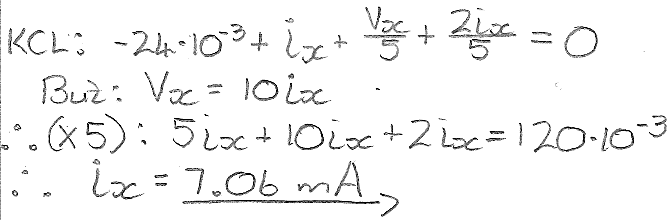 KCL: -24·10⁻³ + ix + Vx/5 + 2ix/5 = 0
But: Vx = 10ix
∴ (×5): 5ix + 10ix + 2ix = 120·10⁻³
∴ ix = 7.06 mA